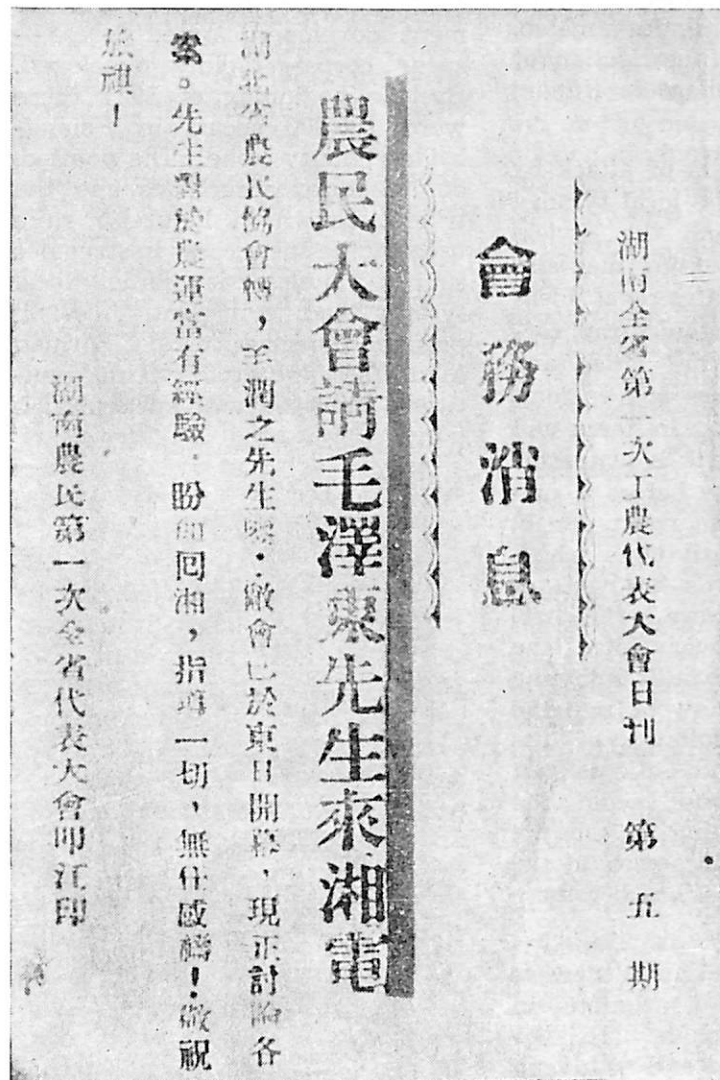 湖南全省第 次工農代表大會日刊 第五期
會務消息
農民大會請毛澤東先生來湘電
湖北省農民協會轉,毛潤之先生鑒:敝會已於東日開幕,現正討論各
案。先生對於農運富有經驗,盼即回湘,指導一切,無任感禱!敬祝
旅祺!
湖南農民第一次全省代表大會叩江印